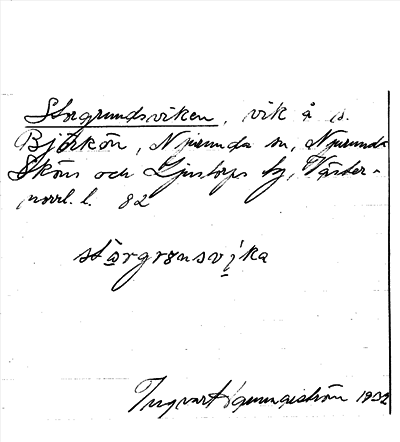 Storgrundsviken, vik å s.
Björkön, Njurunda sn, Njurunda
Sköns och Ljustorps tg, Väster-
norrl. l. 82
störgrønsvika
Ingvar 1932